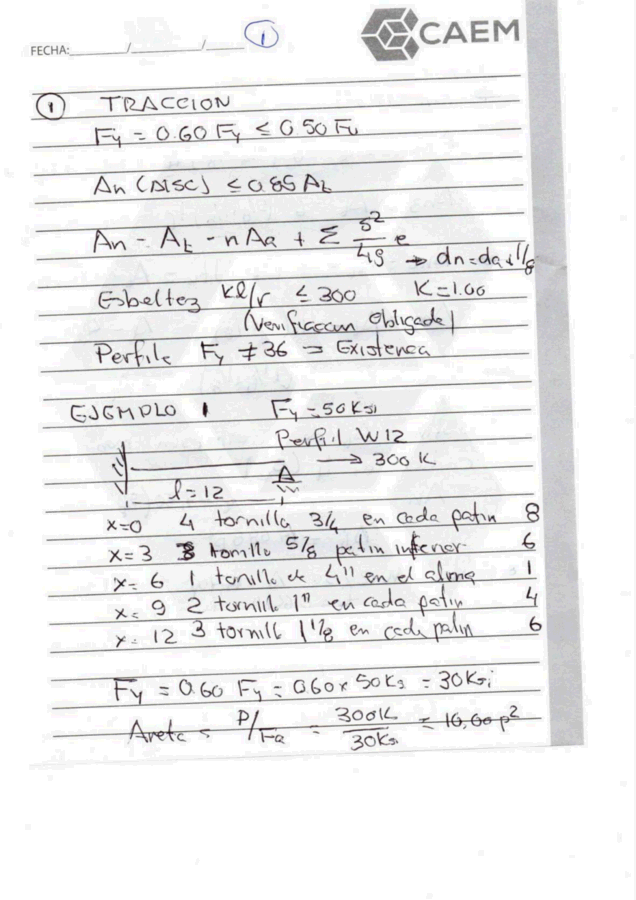 FECHA: / / 1
CAEM
1 TRACCION
Fy = 0.60 Fy ≤ 0.50 Fu
An (DISC) ≤ 0.85 At
An = At - n Aa + Σ s²/4g e → dn = da + 1/8
Esbeltez kl/r ≤ 300 K = 1.00
(Verificacion Obligada)
Perfile Fy ≠ 36 = Existenca
EJEMPLO 1 Fy = 50 Ksi
Perfil W12
→ 300 K
l = 12
x=0 4 tornillo 3/4 en cada patin 8
x=3 3 tornillo 5/8 patin inferior 6
x=6 1 tornillo de 4" en el alma 1
x=9 2 tornillo 1" en cada patin 4
x=12 3 tornillo 1 1/8 en cada patin 6
Fy = 0.60 Fy = 0.60 x 50 Ks = 30 Ksi
P/Fa = 300K/30Ks = 10,00 p²